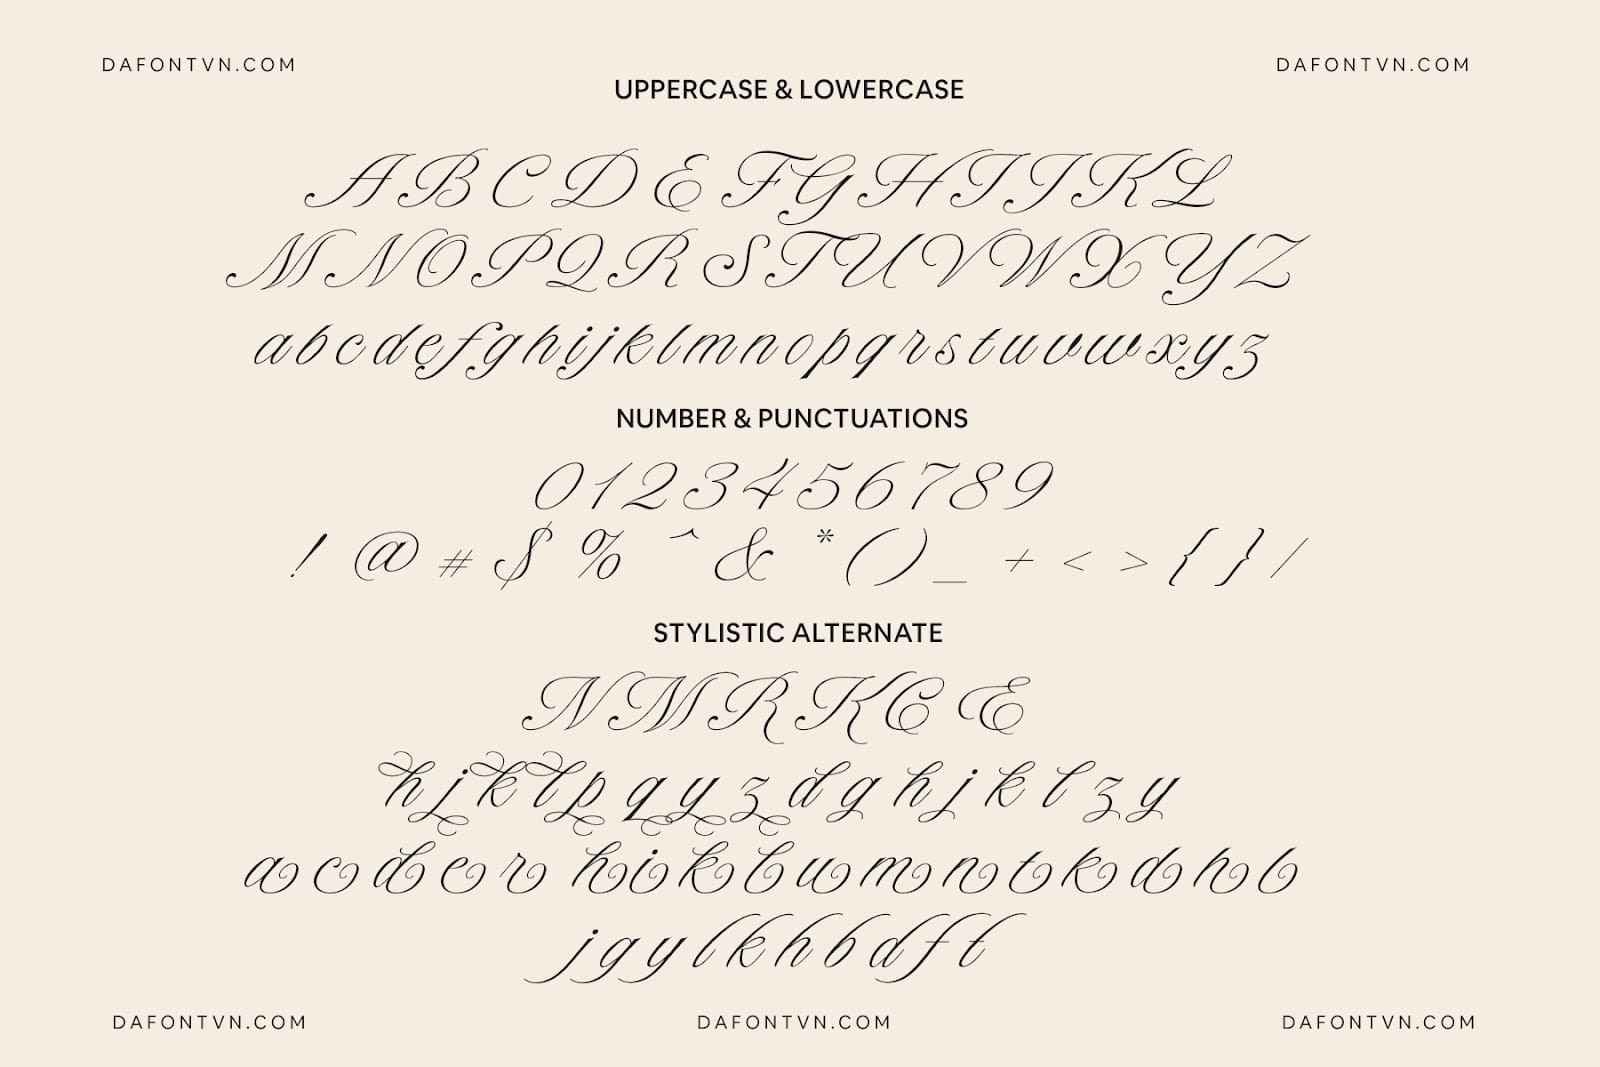 DAFONTVN.COM DAFONTVN.COM
UPPERCASE & LOWERCASE
A B C D E F G H I J K L
M N O P Q R S T U V W X Y Z
a b c d e f g h i j k l m n o p q r s t u v w x y z
NUMBER & PUNCTUATIONS
0 1 2 3 4 5 6 7 8 9
! @ # $ % ^ & * ( ) _ + < > { } /
STYLISTIC ALTERNATE
N M R K C E
h j k l p q y z d g h j k l z y
a c d e r h i k l u m n t k d h l
j g y l k h b d f t
DAFONTVN.COM DAFONTVN.COM DAFONTVN.COM